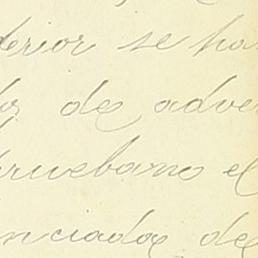 derior se ha
de adve
pruebano el
nciados de